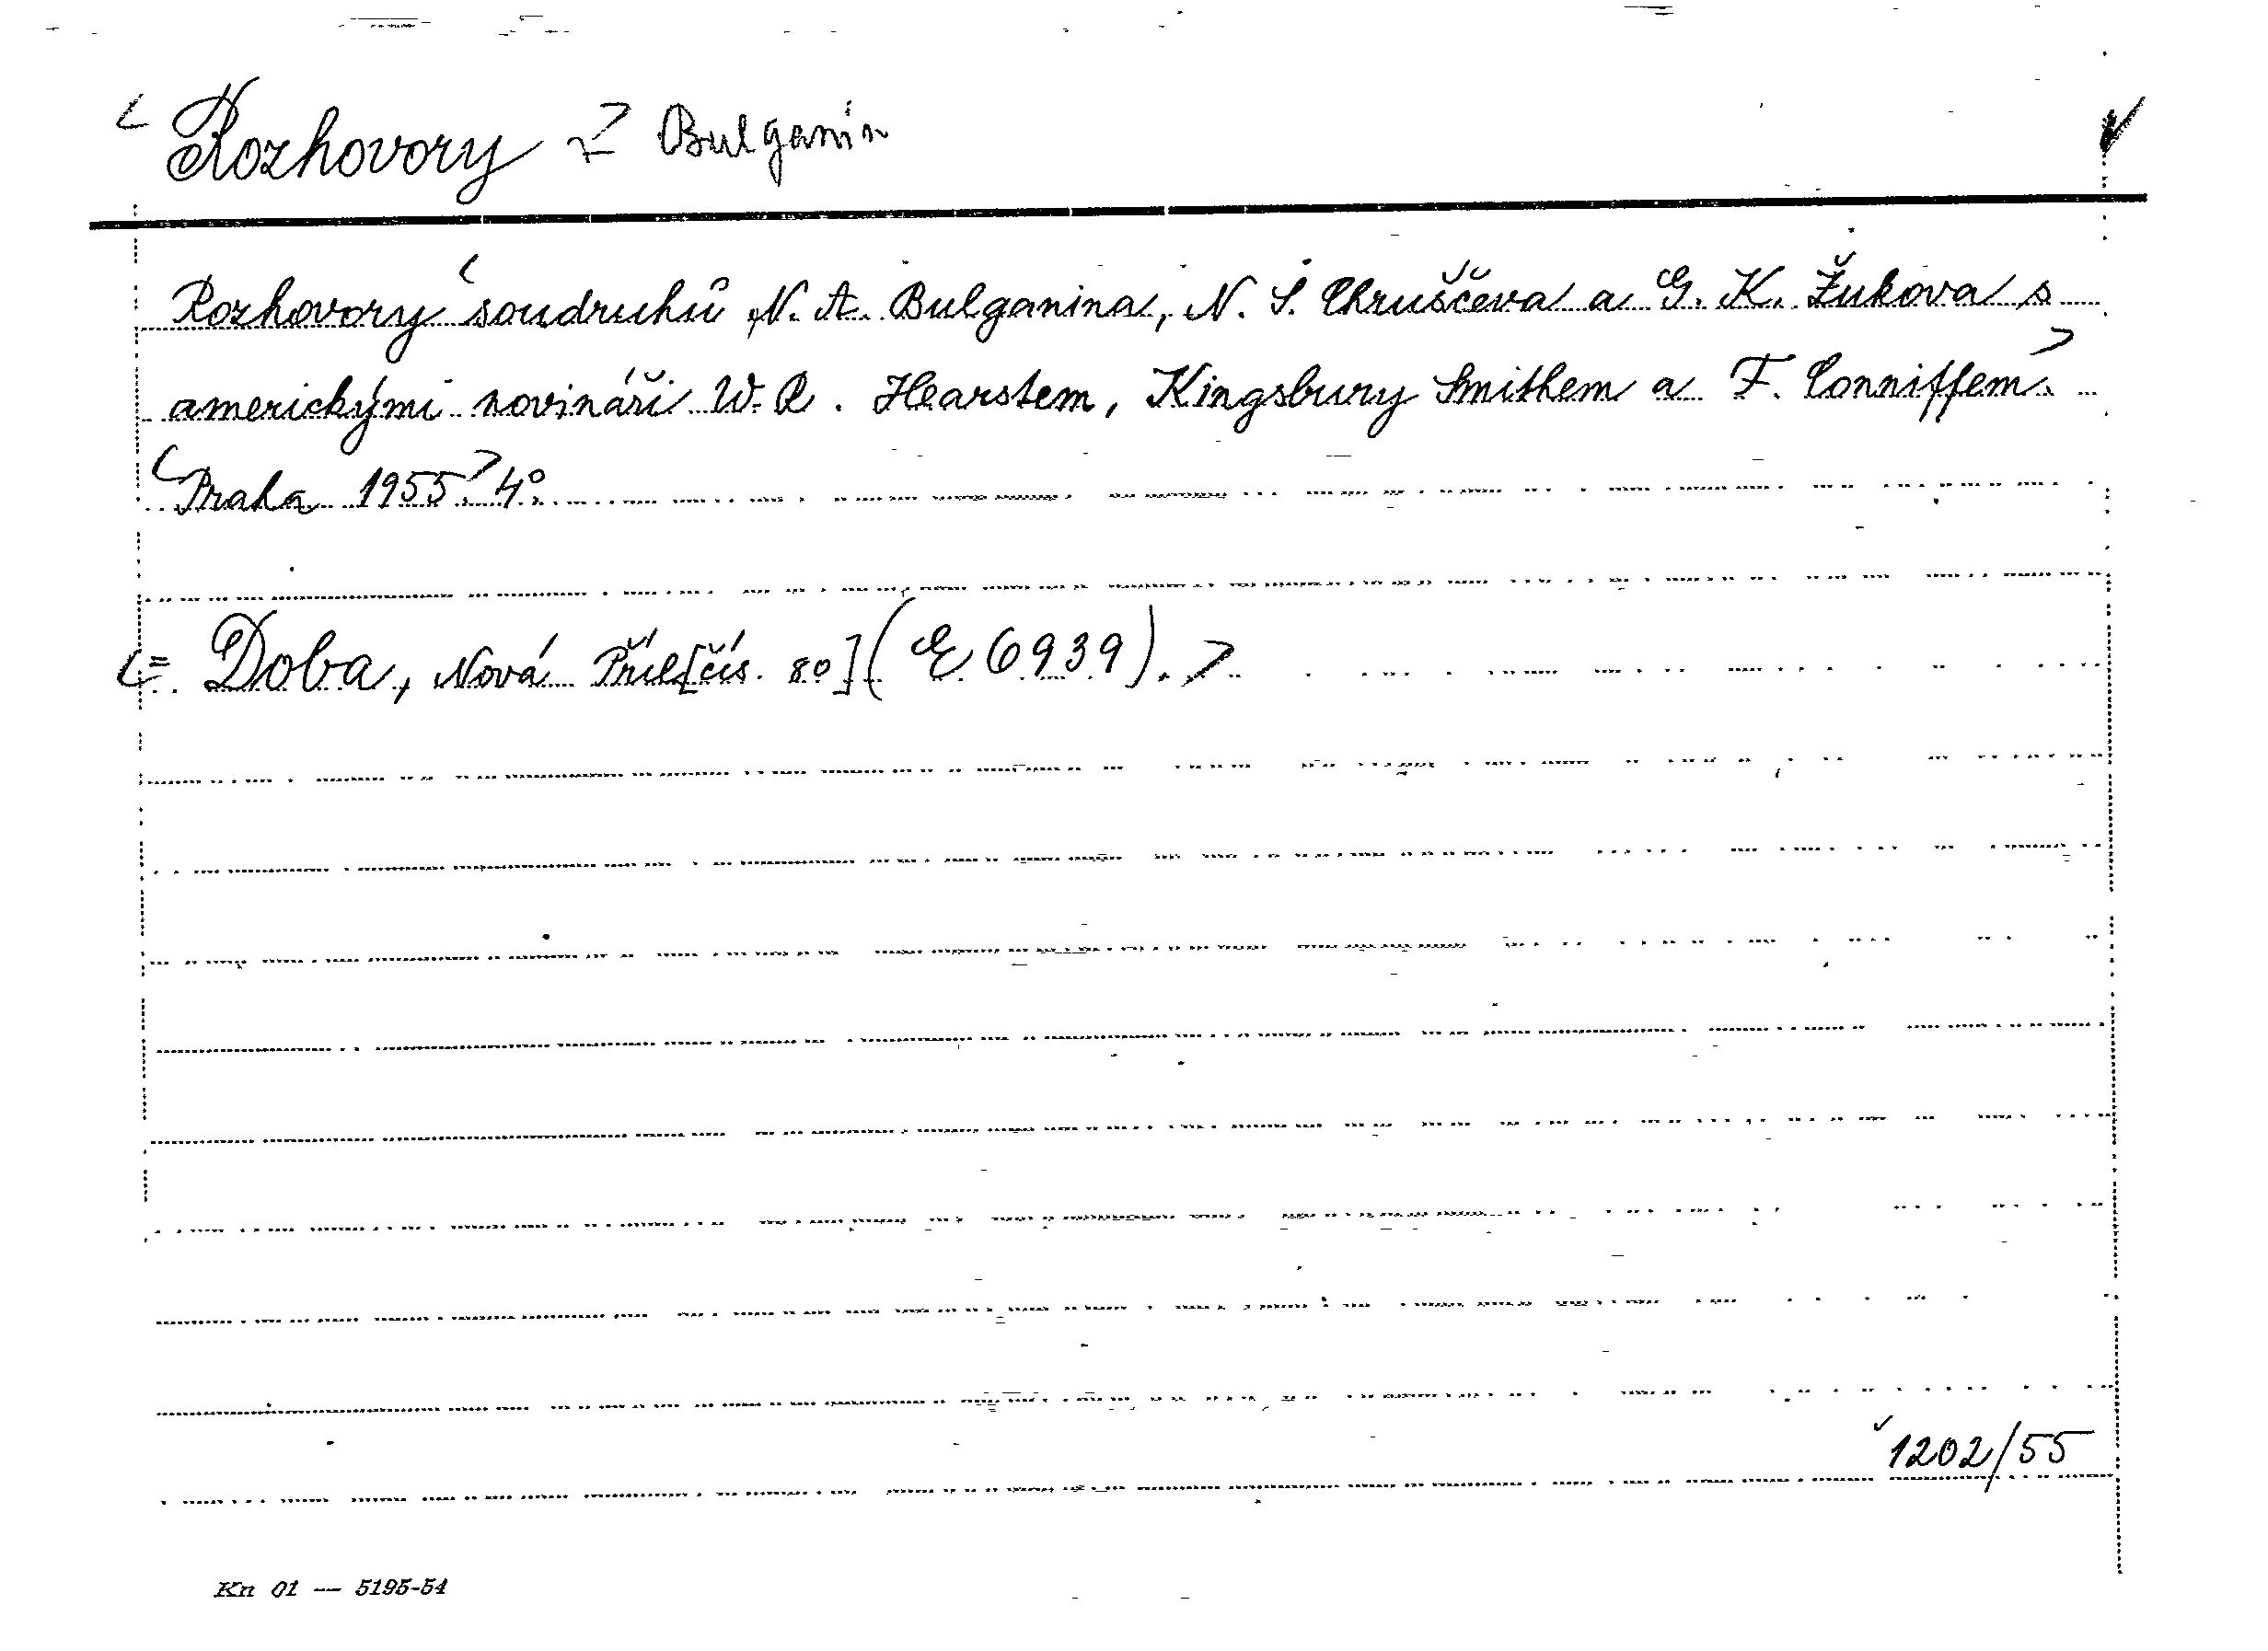 < Rozhovory > Bulganin
Rozhovory < soudruhů N. A. Bulganina, N. S. Chruščeva a G. K. Žukova s
americkými novináři W. R. Hearstem, Kingsbury Smithem a F. Conniffem. >
< Praha 1955. > 4°.
< = Doba, Nová Příl [čís. 80] (E 6939). >
1202/55
Kn 01 — 5195-54